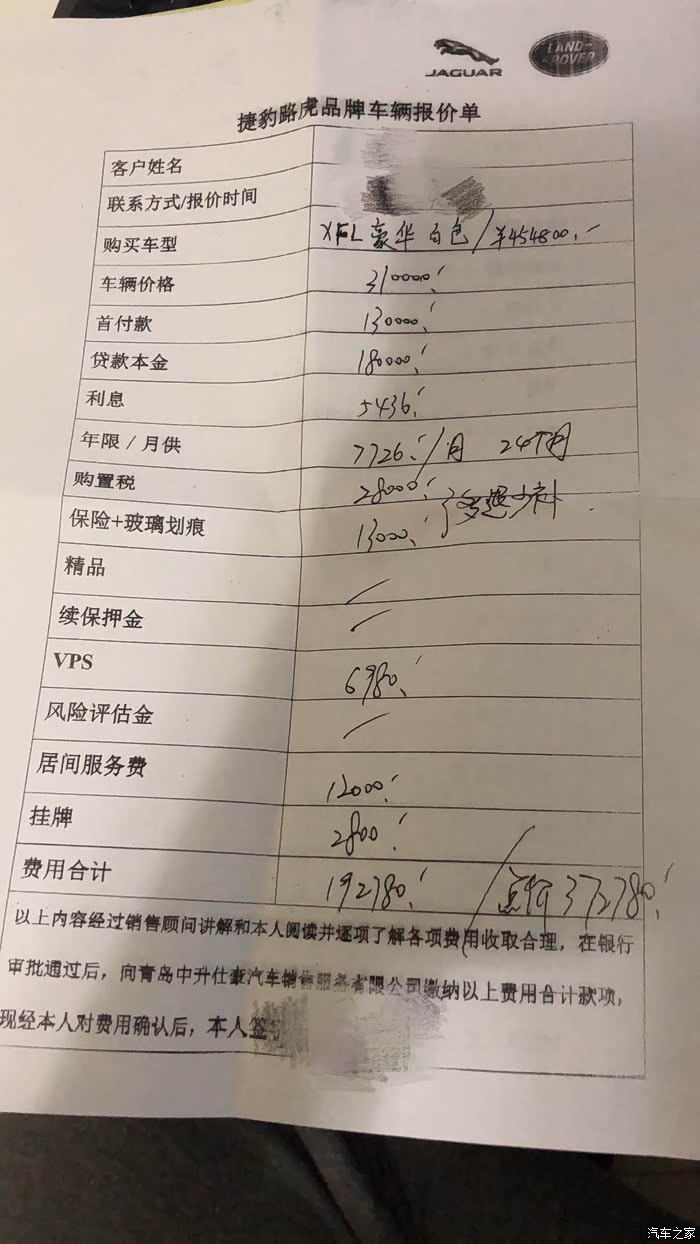 JAGUAR
LAND-
-ROVER
捷豹路虎品牌车辆报价单
客户姓名
联系方式/报价时间
购买车型 XFL 豪华 白色/¥454800.-
车辆价格 310000.-
首付款 130000.-
贷款本金 180000.-
利息 5436.-
年限/月供 7726.-/月 24个月
购置税 28000.-
保险+玻璃划痕 13000.- } 多退少补.
精品 /
续保押金 /
VPS 6980.-
风险评估金 /
居间服务费 12000.-
挂牌 2800.-
费用合计 192780.- / 372780.-
以上内容经过销售顾问讲解和本人阅读并逐项了解各项费用收取合理，在银行
审批通过后，向青岛中升仕豪汽车销售服务有限公司缴纳以上费用合计款项，
现经本人对费用确认后，本人签
汽车之家